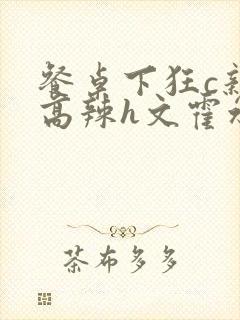 餐桌下狂c新
高辣h文霍水
茶布多多